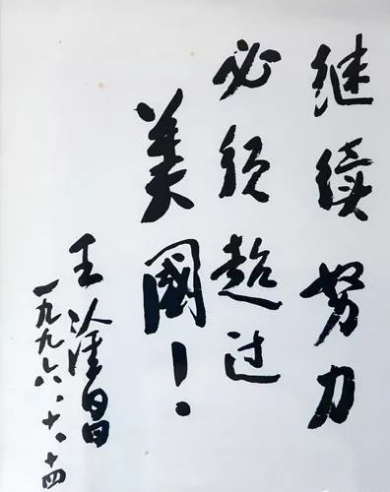 继续努力
必须超过
美國！
王淦昌
一九九六.十.十四